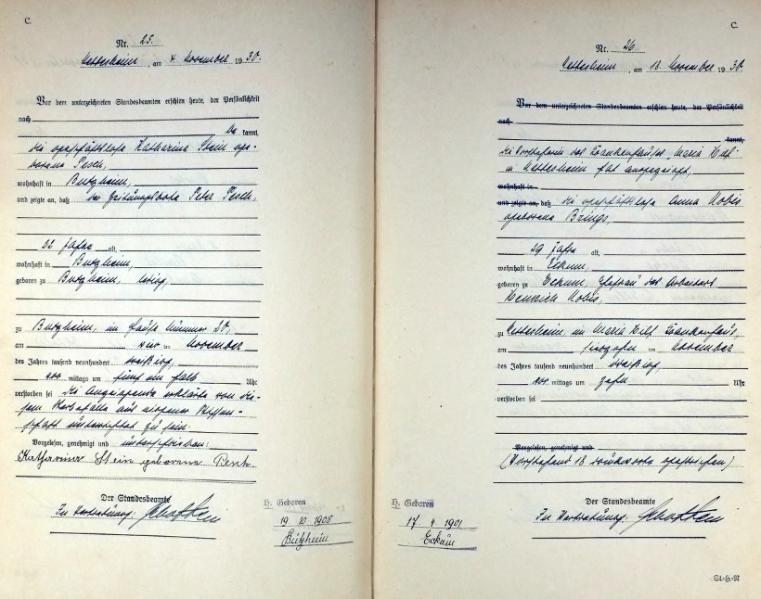 C.
Nr. 25.
Nettesheim, am 4 November 1930.
Vor dem unterzeichneten Standesbeamten erschien heute, der Persönlichkeit
nach
be kannt,
die geschäftslose Katharina Stein ge-
borene
wohnhaft in Butzheim,
und zeigte an, daß der Zeitungsbote Peter
22 Jahre alt,
wohnhaft in Butzheim,
geboren zu Butzheim, ledig,
zu Butzheim, im Hause Nummer 20,
am vier ten November
des Jahres tausend neunhundert dreißig,
vor mittags um fünf ein halb Uhr
verstorben sei Die Anzeigende erklärte von die-
sem Sterbefalle aus eigener Wissen-
schaft unterrichtet zu sein.
Vorgelesen, genehmigt und unterschrieben:
Katharina Stein geborene
Der Standesbeamte
In Vertretung.
H. Geboren
19 10 1908
Butzheim
C.
Nr. 26.
Nettesheim, am 18 November 1930.
Vor dem unterzeichneten Standesbeamten erschien heute, der Persönlichkeit
nach
kannt,
Die Vorsteherin des Krankenhauses „Maria Hilf"
in Nettesheim hat angezeigt,
wohnhaft in
und zeigte an, daß die geschäftslose Anna Nobis
geborene Brings,
29 Jahre alt,
wohnhaft in Eckum,
geboren zu Eckum, Ehefrau des Arbeiters
Heinrich Nobis,
zu Nettesheim im Maria Hilf Krankenhaus,
am ten November
des Jahres tausend neunhundert dreißig,
vor mittags um zehn Uhr
verstorben sei
Vorgelesen, genehmigt und
(Vorstehend 13 Druckworte gestrichen)
Der Standesbeamte
In Vertretung.
H. Geboren
17 4 1901
Eckum
St-H-N